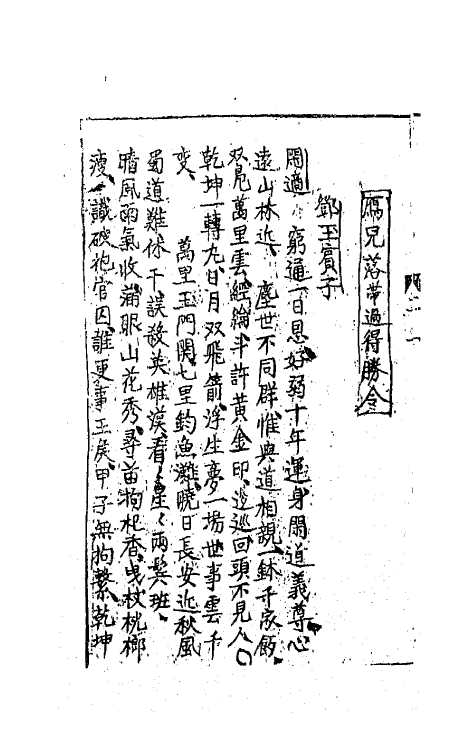 鴈兒落帶過得勝令
鄧玉賓子
閑適 窮通一日恩好弱十年運身閑道義尊心
遠山林近 塵世不同群惟與道相親一鉢千家飯
双凫萬里雲經綸半許黃金印逡巡回頭不見人〇
乾坤一轉丸日月双飛箭浮生夢一場世事雲千
變 萬里玉門関七里釣魚灘曉日長安近秋風
蜀道難休干誤殺英雄漢看看星星兩鬂班
晴風雨氣收滿眼山花秀尋苗枸杞香曳杖桄榔
瘦識破袍官囚誰更事王矦甲子無拘繫乾坤